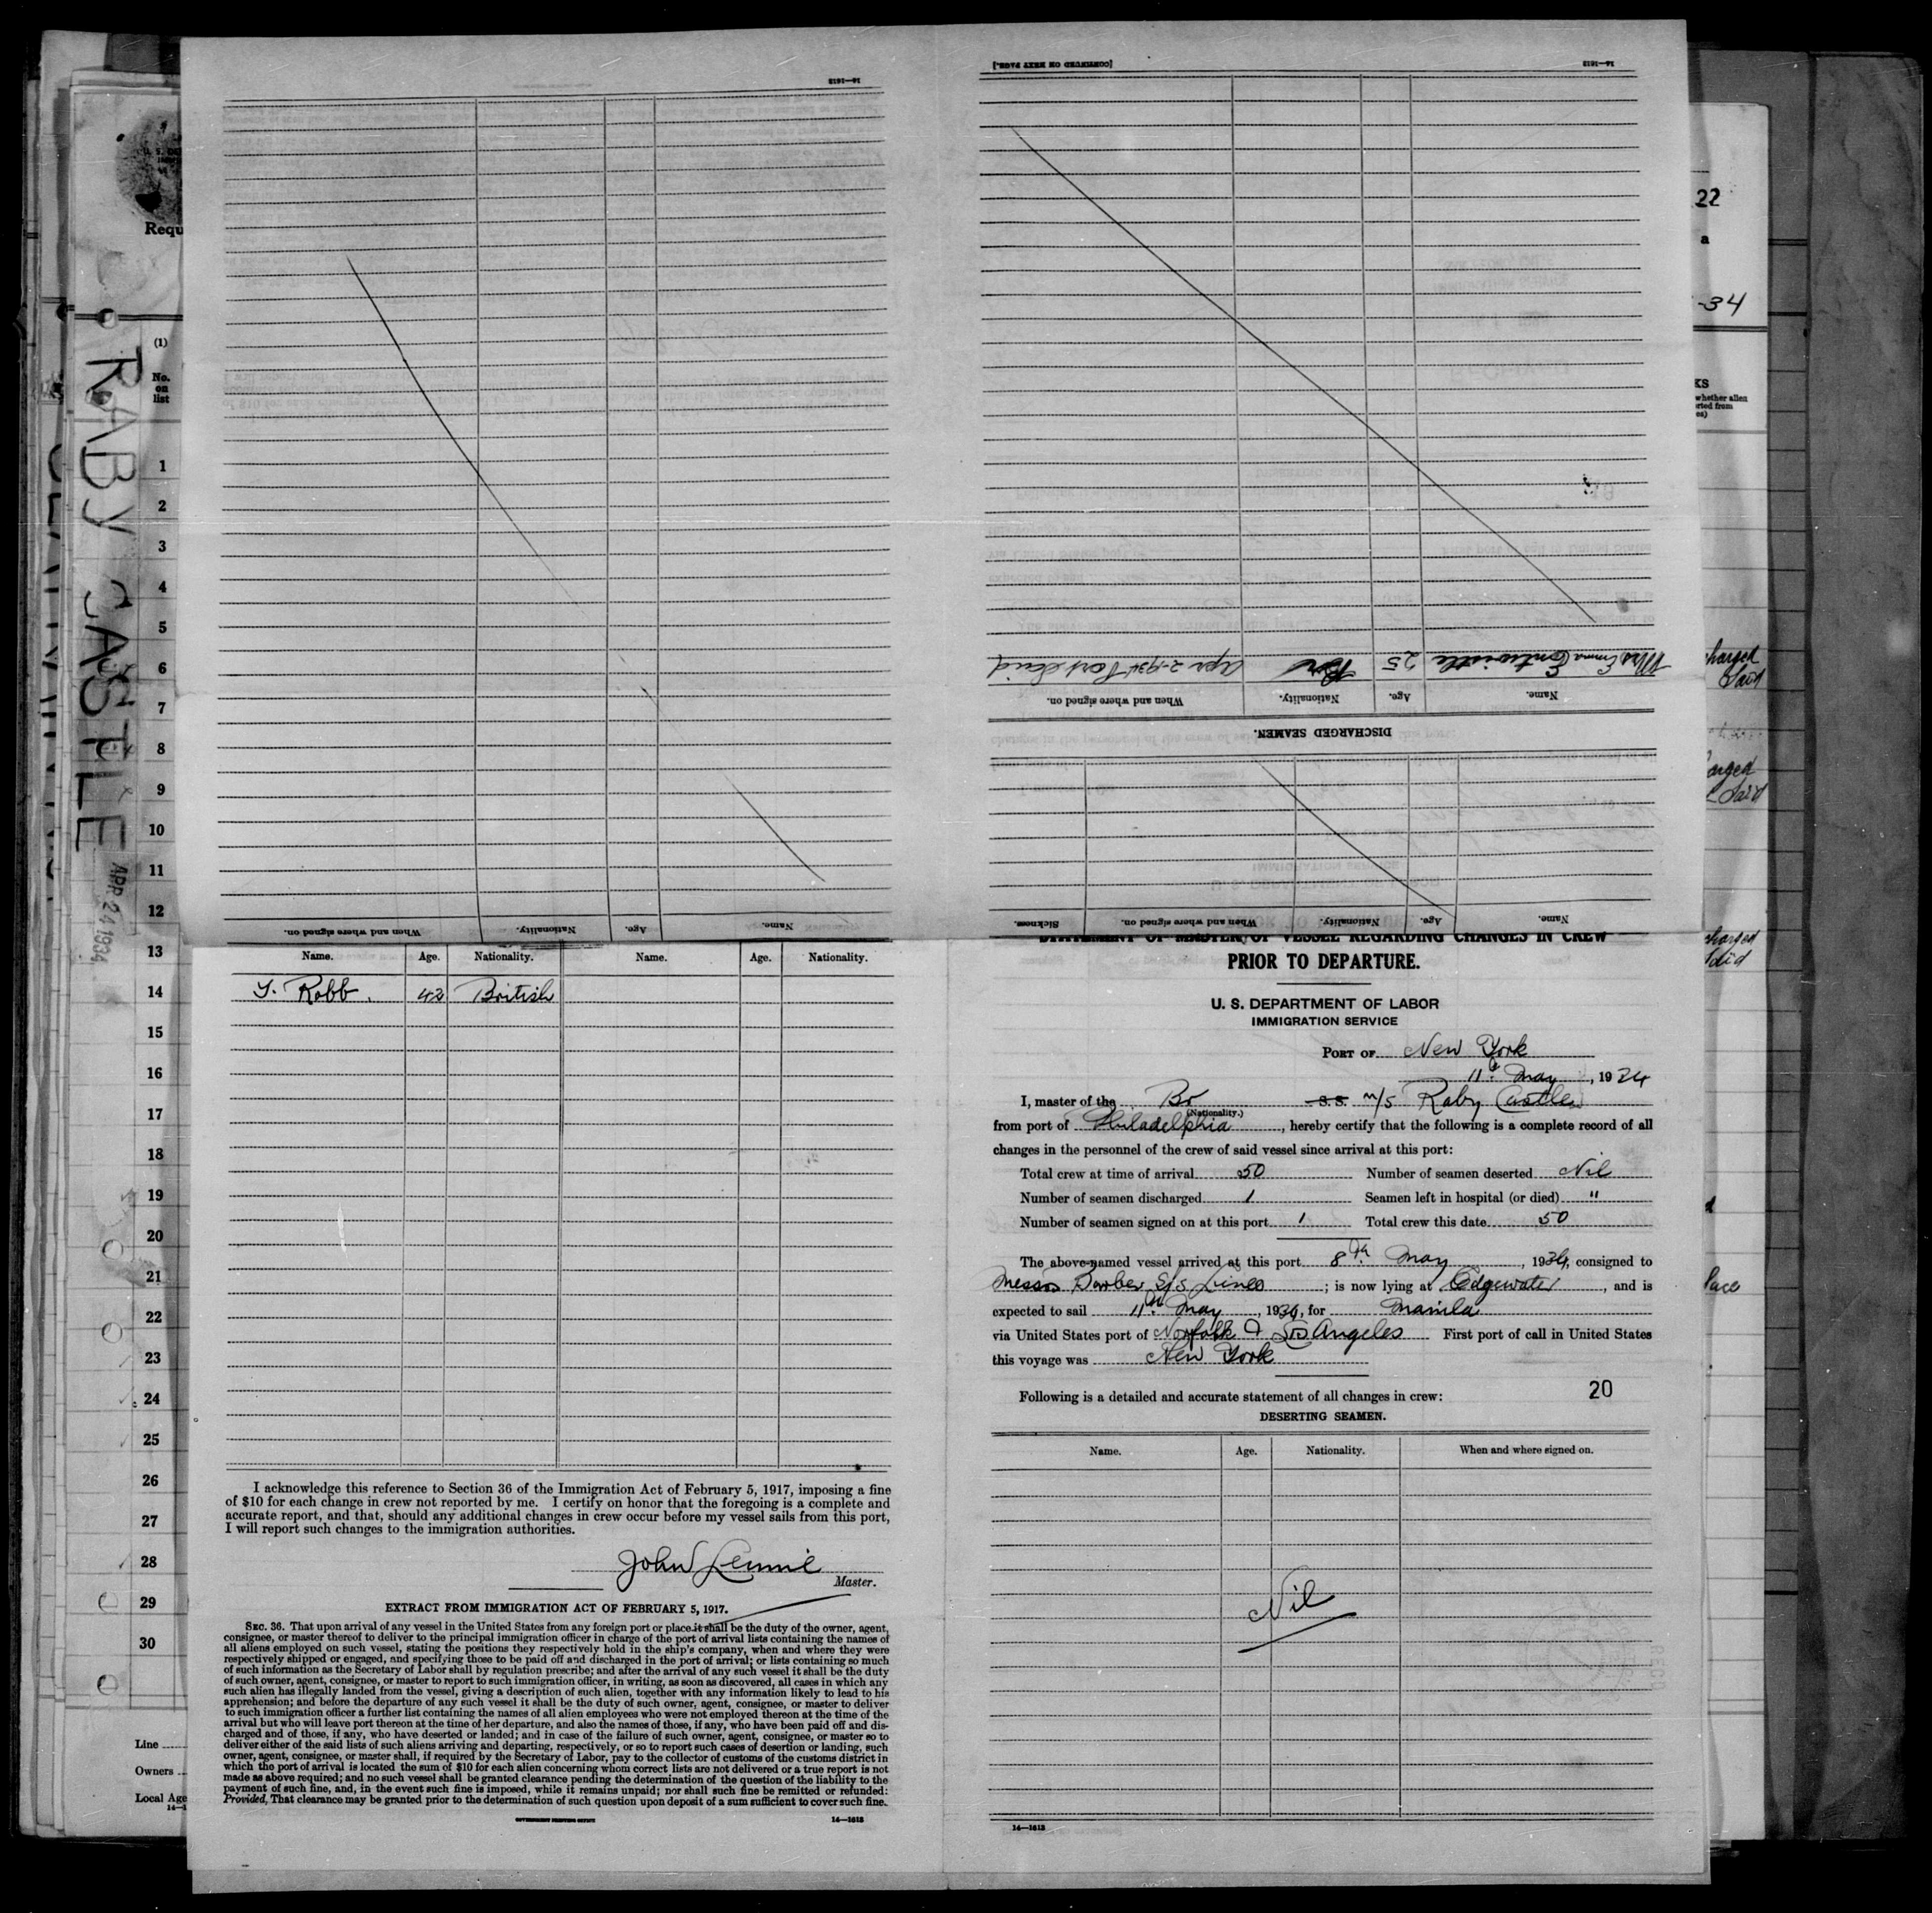 14—1613
When and where signed on.
Nationality.
Age.
Name.
[CONTINUED ON NEXT PAGE.]
14—1613
Mrs Emma Entwistle 25 Br Apr 2-1934 Port Said
Name.
Age.
Nationality.
When and where signed on.
DISCHARGED SEAMEN.
Name.
Age.
Nationality.
When and where signed on.
Sickness.
Requ
(1)
No.
on
list
1
2
3
4
5
6
7
8
9
10
11
12
13
14
15
16
17
18
19
20
21
22
23
24
25
26
27
28
29
30
Line
Owners
Local Age
14—1
RABY CASTLE
APR 24 1934
Name. Age. Nationality. Name. Age. Nationality.
Robb. 42 British
I acknowledge this reference to Section 36 of the Immigration Act of February 5, 1917, imposing a fine
of $10 for each change in crew not reported by me. I certify on honor that the foregoing is a complete and
accurate report, and that, should any additional changes in crew occur before my vessel sails from this port,
I will report such changes to the immigration authorities.
John Lennie
Master.
EXTRACT FROM IMMIGRATION ACT OF FEBRUARY 5, 1917.
SEC. 36. That upon arrival of any vessel in the United States from any foreign port or place it shall be the duty of the owner, agent,
consignee, or master thereof to deliver to the principal immigration officer in charge of the port of arrival lists containing the names of
all aliens employed on such vessel, stating the positions they respectively hold in the ship's company, when and where they were
respectively shipped or engaged, and specifying those to be paid off and discharged in the port of arrival; or lists containing so much
of such information as the Secretary of Labor shall by regulation prescribe; and after the arrival of any such vessel it shall be the duty
of such owner, agent, consignee, or master to report to such immigration officer, in writing, as soon as discovered, all cases in which any
such alien has illegally landed from the vessel, giving a description of such alien, together with any information likely to lead to his
apprehension; and before the departure of any such vessel it shall be the duty of such owner, agent, consignee, or master to deliver
to such immigration officer a further list containing the names of all alien employees who were not employed thereon at the time of the
arrival but who will leave port thereon at the time of her departure, and also the names of those, if any, who have been paid off and dis-
charged and of those, if any, who have deserted or landed; and in case of the failure of such owner, agent, consignee, or master so to
deliver either of the said lists of such aliens arriving and departing, respectively, or so to report such cases of desertion or landing, such
owner, agent, consignee, or master shall, if required by the Secretary of Labor, pay to the collector of customs of the customs district in
which the port of arrival is located the sum of $10 for each alien concerning whom correct lists are not delivered or a true report is not
made as above required; and no such vessel shall be granted clearance pending the determination of the question of the liability to the
payment of such fine, and, in the event such fine is imposed, while it remains unpaid; nor shall such fine be remitted or refunded:
Provided, That clearance may be granted prior to the determination of such question upon deposit of a sum sufficient to cover such fine.
GOVERNMENT PRINTING OFFICE
14—1613
STATEMENT OF MASTER OF VESSEL REGARDING CHANGES IN CREW
PRIOR TO DEPARTURE.
U. S. DEPARTMENT OF LABOR
IMMIGRATION SERVICE
PORT OF New York
11th May, 1934
I, master of the Br S.S. m/s Raby Castle
(Nationality.)
from port of Philadelphia, hereby certify that the following is a complete record of all
changes in the personnel of the crew of said vessel since arrival at this port:
Total crew at time of arrival 50 Number of seamen deserted Nil
Number of seamen discharged 1 Seamen left in hospital (or died) "
Number of seamen signed on at this port 1 Total crew this date 50
The above-named vessel arrived at this port 8th May, 1934, consigned to
Messrs Barber S/S Lines; is now lying at Edgewater, and is
expected to sail 11th May, 1934, for Manila
via United States port of Norfolk & Los Angeles First port of call in United States
this voyage was New York
Following is a detailed and accurate statement of all changes in crew:
20
DESERTING SEAMEN.
Name. Age. Nationality. When and where signed on.
Nil
14—1613
22
a
-34
KS
whether alien
rted from
es)
harged
Said
arged
Said
harged
Said